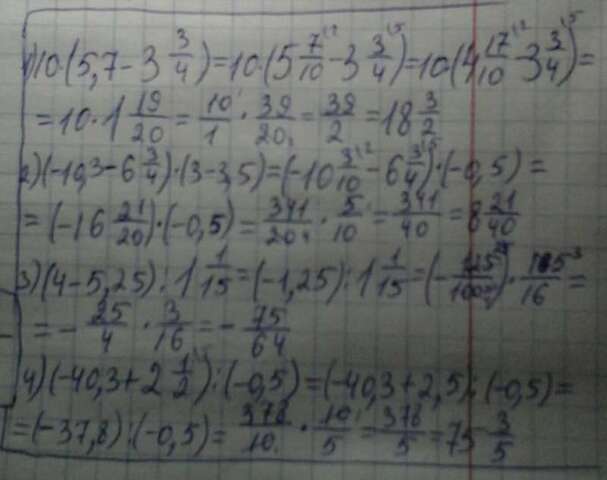 1) 10·(5,7-3 3/4)=10·(5 7/10-3 3/4)=10·(4 17/10-3 3/4)=
=10·1 19/20=10/1·39/20=39/2=18 3/2
2) (-10,3-6 3/4)·(3-3,5)=(-10 3/10-6 3/4)·(-0,5)=
=(-16 21/20)·(-0,5)=341/20·5/10=341/40=8 21/40
3) (4-5,25):1 1/15=(-1,25):1 1/15=(-125/100)·15/16=
=-25/4·3/16=-75/64
4) (-40,3+2 1/2):(-0,5)=(-40,3+2,5):(-0,5)=
=(-37,8):(-0,5)=378/10·10/5=378/5=75 3/5